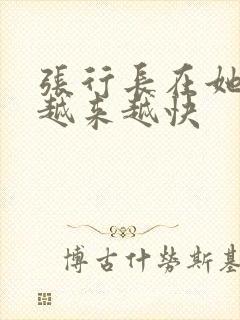 張行長在她
越來越快
博古什勞斯基